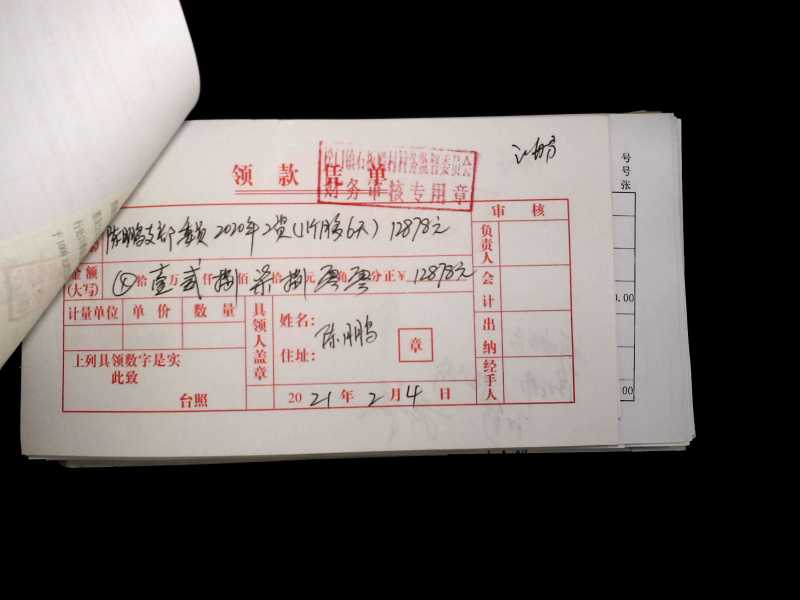 领款凭单
财务审核专用章
陈鹏支部委员2020年工资(1个月零6天) 12878元
审核
负责人
金额
(大写)
拾壹万贰仟捌佰柒拾捌元零角零分正¥12878元
会计
计量单位 单价 数量
具领人盖章
姓名:
陈鹏
住址:
章
出纳
上列具领数字是实
此致
台照
2021年2月4日
经手人
号
号
张
.00
00